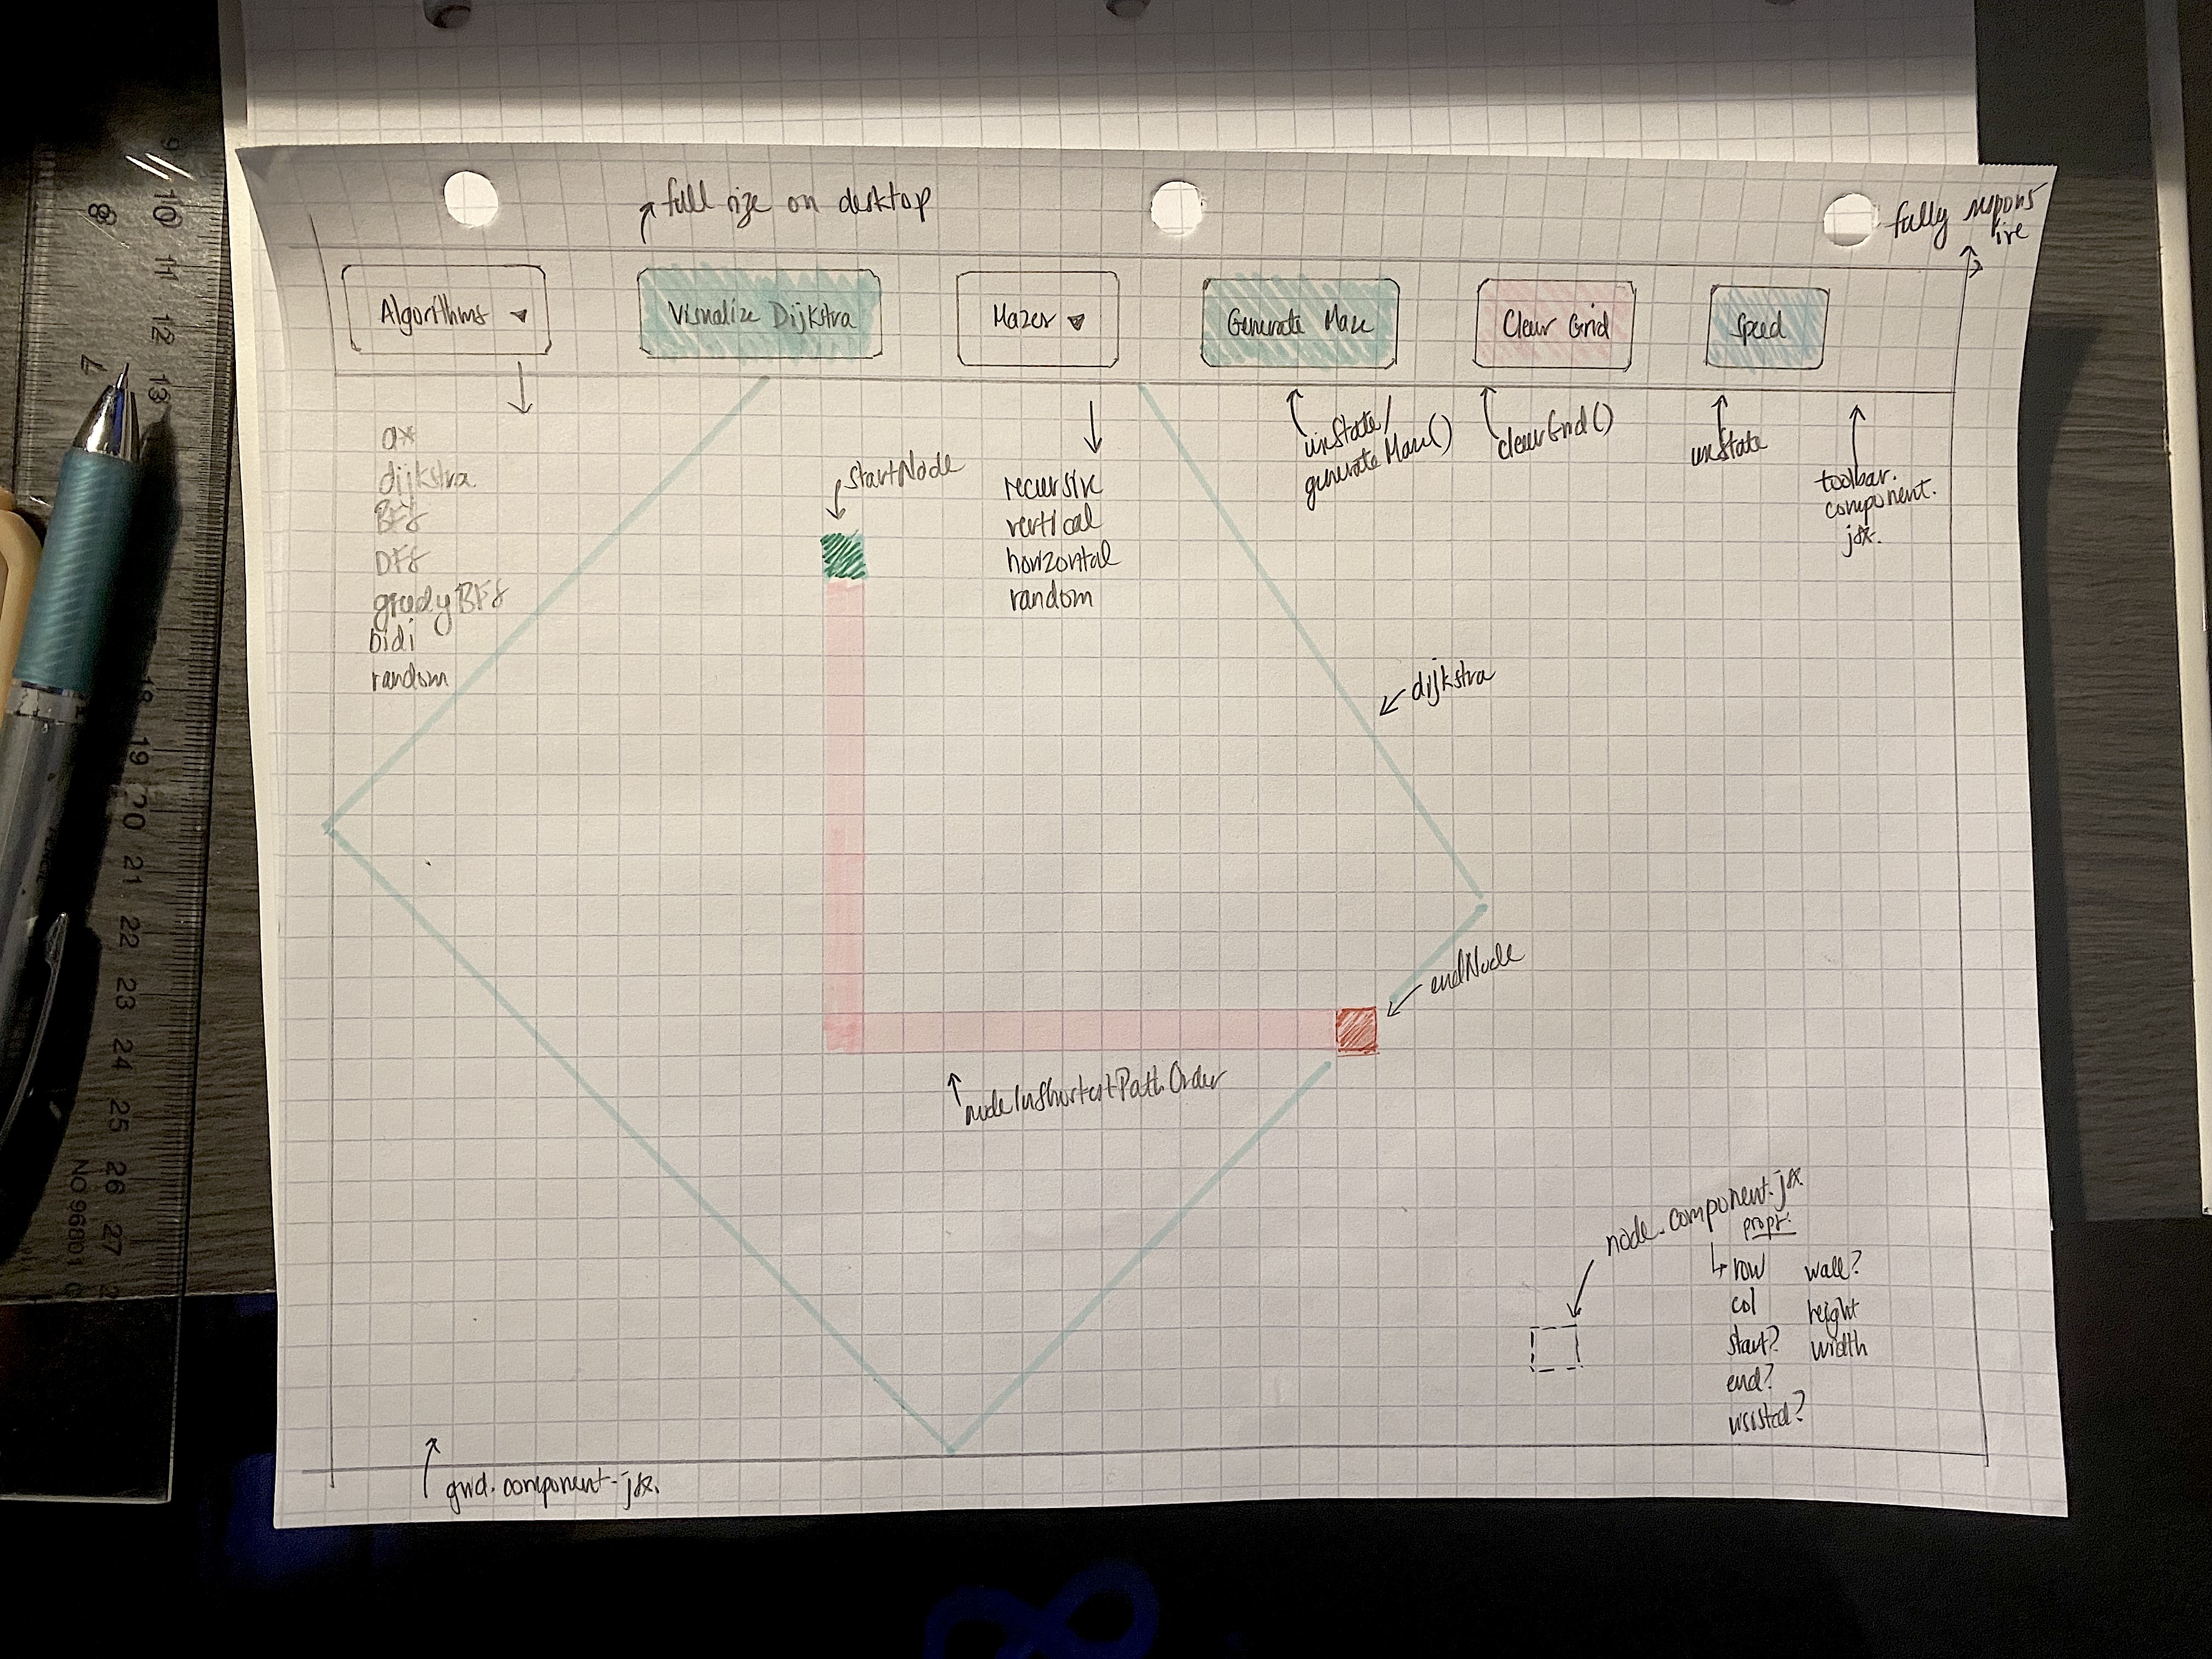 full size on desktop
fully respons
ive
Algorithms
Visualize Dijkstra
Mazes
Generate Maze
Clear Grid
Speed
a*
dijkstra
BFS
DFS
greedyBFS
bidi
random
startNode
recursive
vertical
horizontal
random
useState/
generateMaze()
clearGrid()
useState
toolbar.
component.
jsx.
dijkstra
endNode
nodeInShortestPathOrder
node.component.jsx
props:
row
col
start?
end?
visited?
wall?
height
width
grid.component.jsx.
8
7
9
10
11
12
13
18
19
20
21
22
23
24
25
26
27
2